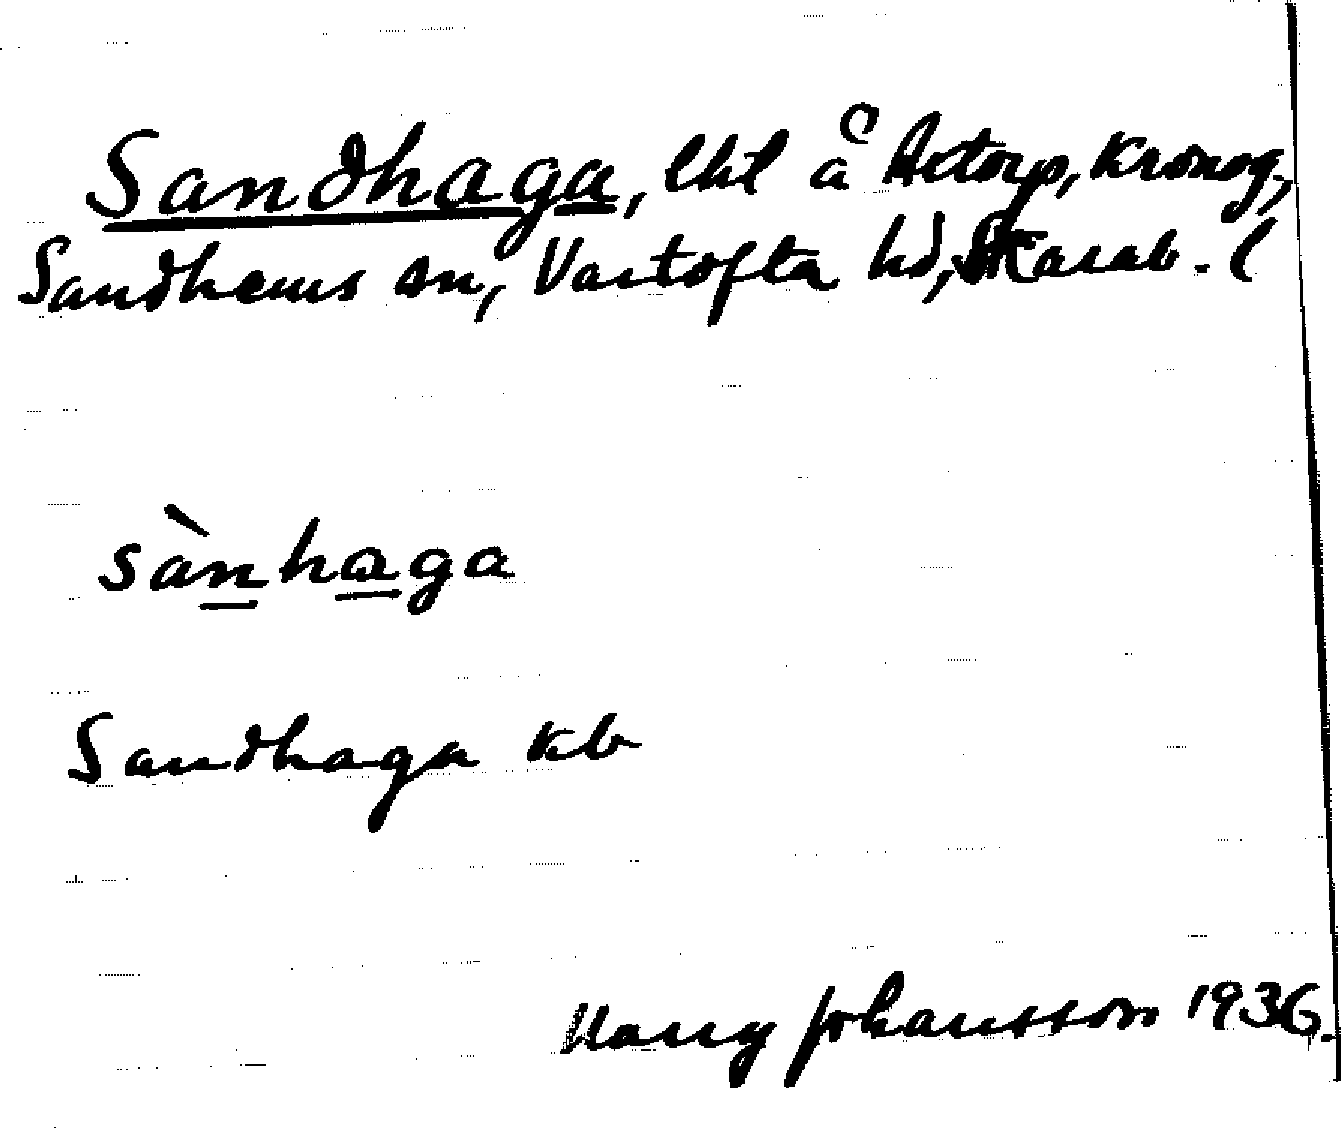 Sandhaga, lhl å Aetorp, Kronog.,
Sandhems sn, Vartofta hd, Skarab. l
sànhaga
Sandhaga kb
Harry Johansson 1936.